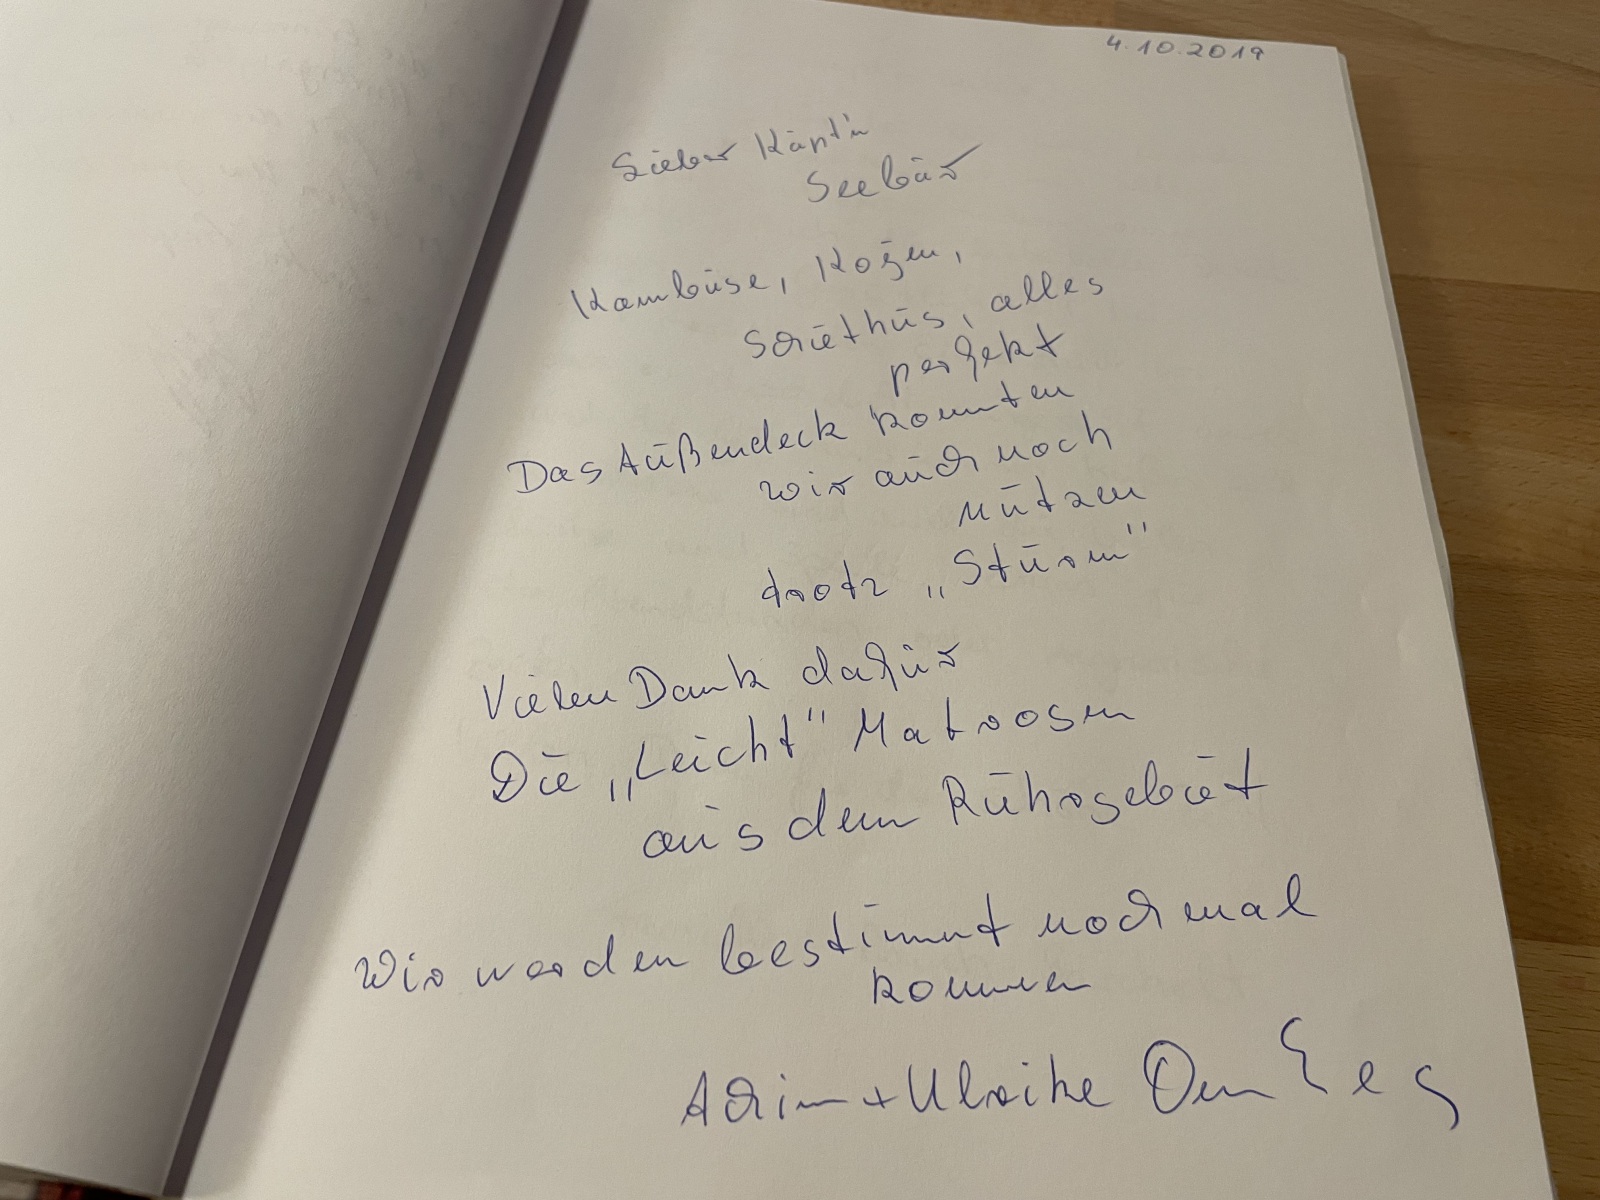 4.10.2019
Lieber Käpt'n
Seebär
Kombüse, Kojen,
alles
perfekt
Das Außendeck konnten
wir auch noch
nutzen
trotz „Sturm"
Vielen Dank dafür
Die „Leicht" Matrosen
aus dem Ruhrgebiet
Wir werden bestimmt noch mal
kommen
+ Ulrike